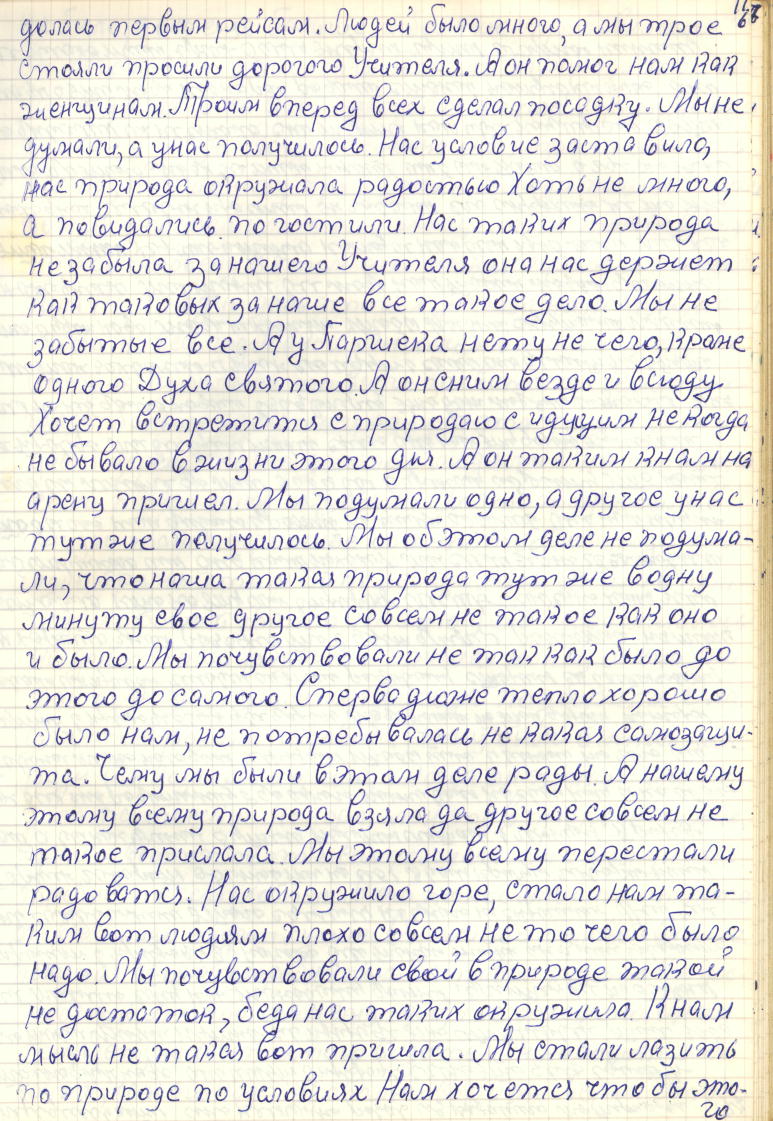 далась первым рейсам. Людей было много, а мы трое
стояли просили дорогого Учителя. А он помог нам как
женщинам. Троим вперед всех сделал посадку. Мы не
думали, а унас получилось. Нас условие заставило,
нас природа окружала радостью Хоть не много,
а повидались погостили. Нас таких природа
незабыла за нашего Учителя она нас держет
как таковых за наше все такое дело. Мы не
забытые все. А у Паршека нету не чего, кране
одного Духа святого. А он сним везде и всюду
Хочет встретится с природаю с идущим не когда
не бывало в жизни этого дня. А он таким к нам на
арену пришел. Мы подумали одно, а другое у нас
тут же получилось. Мы об этом деле не подума-
ли, что наша такая природа тут же в одну
минуту свое другое совсем не такое как оно
и было. Мы почувствовали не так как было до
этого до самого. Сперва дюже тепло хорошо
было нам, не потребывалась не какая самозащи-
та. Чему мы были в этам деле рады. А нашему
этому всему природа взяла да другое совсем не
такое прислала. Мы этому всему перестали
радоватся. Нас окружило горе, стало нам та-
ким вот людям плохо совсем не то чего было
надо. Мы почувствовали свой в природе такой
не достаток, беда нас таких окружила. К нам
мысль не такая вот пришла. Мы стали лазить
по природе по условиях Нам хочется что бы это-
го